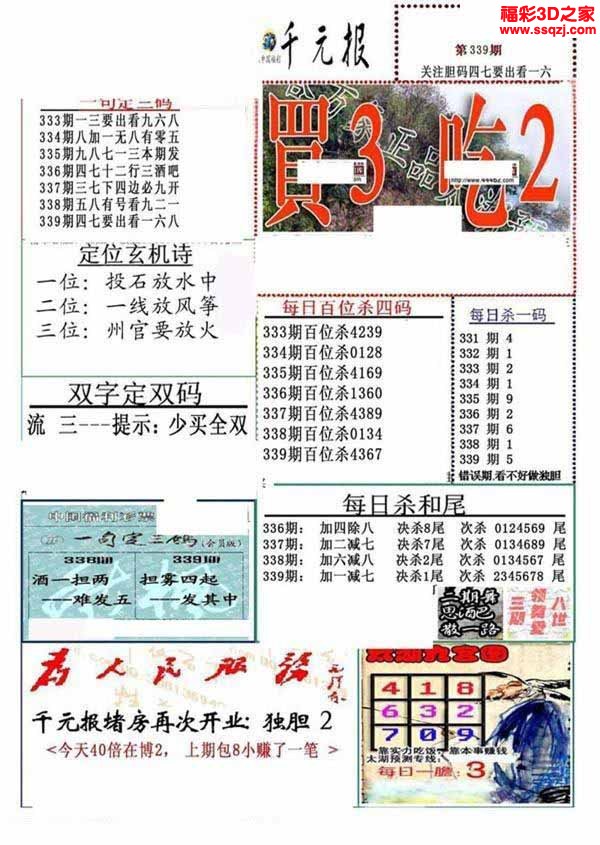 福彩3D之家
www.ssqzj.com
千元报
第339期
关注胆码四七要出看一六
一句定三码
333期一三要出看九六八
334期八加一无八有零五
335期九八七一三本期发
336期四七十二行三酒吧
337期三七下四边必九开
338期五八有号看九二一
339期四七要出看一六八
買3吃2
http://www.444bz.com
定位玄机诗
一位：投石放水中
二位：一线放风筝
三位：州官要放火
每日百位杀四码
333期百位杀4239
334期百位杀0128
335期百位杀4169
336期百位杀1360
337期百位杀4389
338期百位杀0134
339期百位杀4367
每日杀一码
331 期 4
332 期 1
333 期 2
334 期 1
335 期 9
336 期 2
337 期 6
338 期 1
339 期 5
错误期,看不好做独胆
双字定双码
流 三---提示：少买全双
中国福利彩票
一句定三码(会员版)
338期
339期
酒一担两
---难发五
担雾四起
---发其中
每日杀和尾
336期： 加四除八 决杀8尾 次杀 0124569 尾
337期： 加二减七 决杀7尾 次杀 0134689 尾
338期： 加六减八 决杀2尾 次杀 0134567 尾
339期： 加一减七 决杀1尾 次杀 2345678 尾
散一路
三期
为人民服务
千元报堵房再次开业: 独胆 2
<今天40倍在博2， 上期包8小赚了一笔 >
太湖九宫图
4 1 8
6 3 2
7 0 9
靠实力吃饭，靠本事赚钱
太湖预测专线：
每日一胆：3